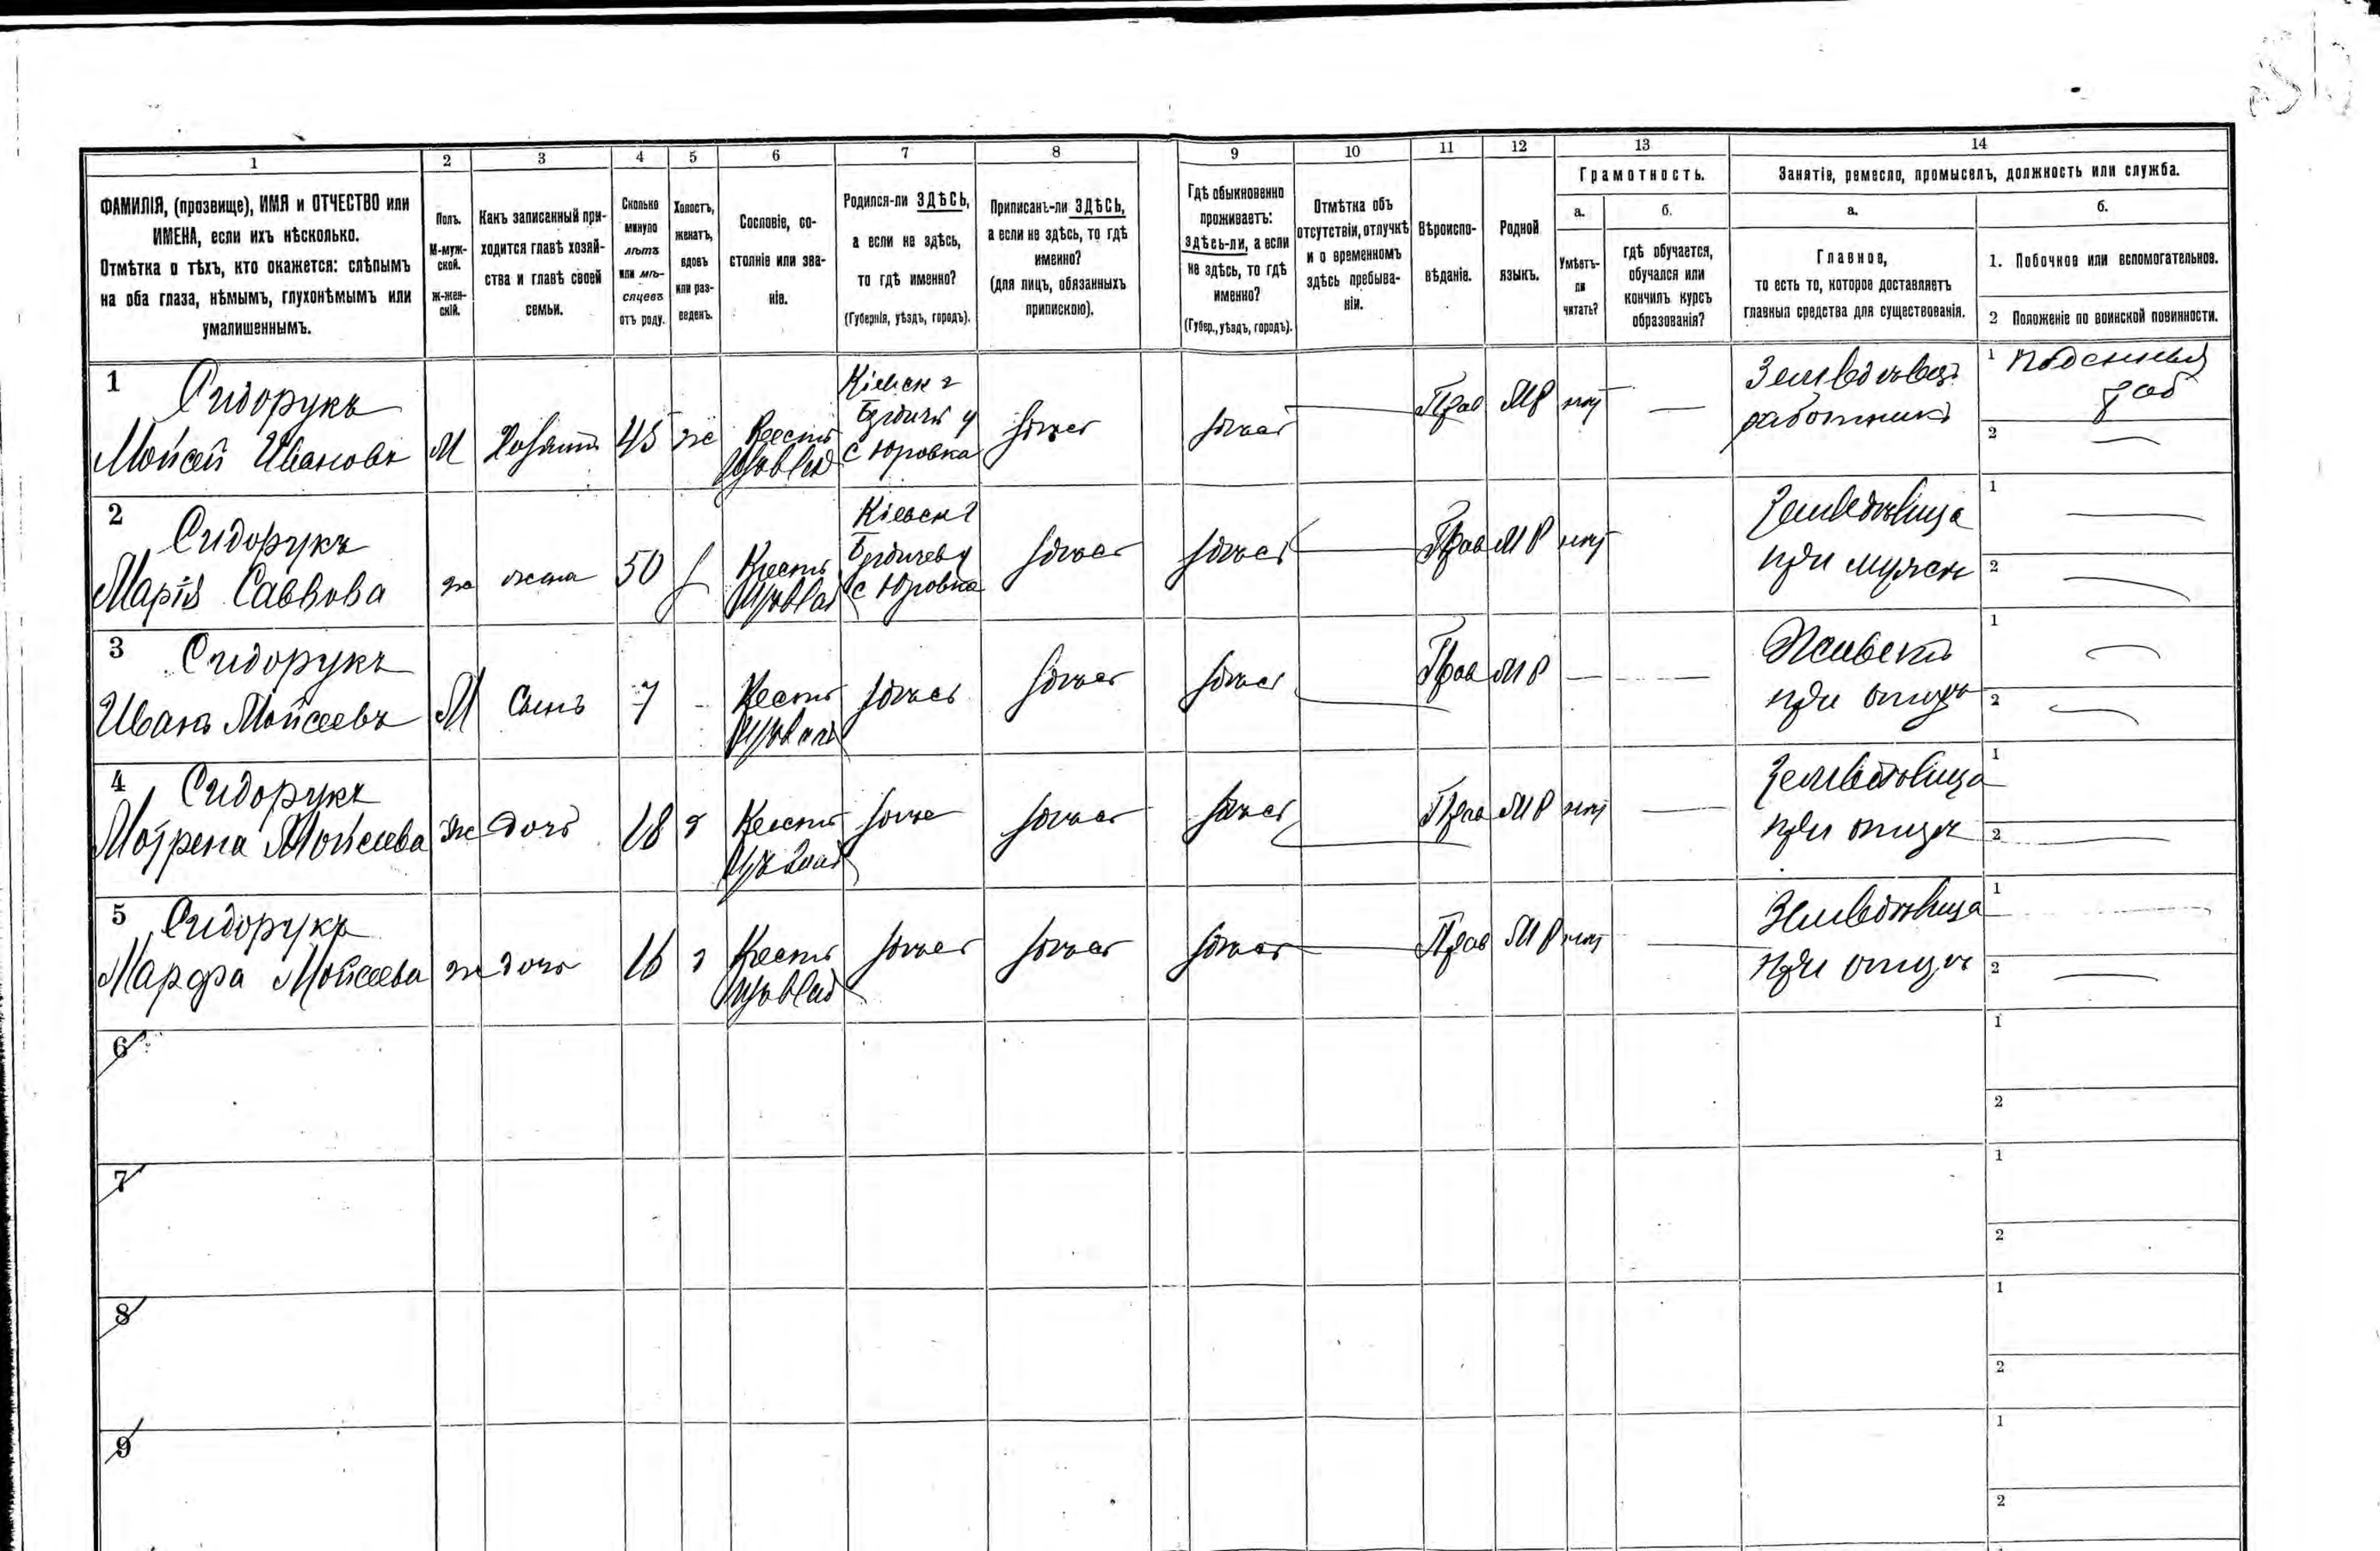 1 2 3 4 5 6 7 8 9 10 11 12 13 14
ФАМИЛІЯ, (прозвище), ИМЯ и ОТЧЕСТВО или
ИМЕНА, если ихъ нѣсколько.
Отмѣтка о тѣхъ, кто окажется: слѣпымъ
на оба глаза, нѣмымъ, глухонѣмымъ или
умалишеннымъ.
Полъ.
М-муж-
ской.
ж-жен-
скій.
Какъ записанный при-
ходится главѣ хозяй-
ства и главѣ своей
семьи.
Сколько
минуло
лѣтъ
или мѣ-
сяцевъ
отъ роду.
Холостъ,
женатъ,
вдовъ
или раз-
веденъ.
Сословіе, со-
стояніе или зва-
ніе.
Родился-ли ЗДѢСЬ,
а если не здѣсь,
то гдѣ именно?
(Губернія, уѣздъ, городъ).
Приписанъ-ли ЗДѢСЬ,
а если не здѣсь, то гдѣ
именно?
(для лицъ, обязанныхъ
припискою).
Гдѣ обыкновенно
проживаетъ:
здѣсь-ли, а если
не здѣсь, то гдѣ
именно?
(Губер., уѣздъ, городъ).
Отмѣтка объ
отсутствіи, отлучкѣ
и о временномъ
здѣсь пребыва-
ніи.
Вѣроиспо-
вѣданіе.
Родной
языкъ.
Грамотность.
а.
Умѣетъ-
ли
читать?
б.
гдѣ обучается,
обучался или
кончилъ курсъ
образованія?
Занятіе, ремесло, промыселъ, должность или служба.
а.
Главное,
то есть то, которое доставляетъ
главныя средства для существованія.
б.
1. Побочное или вспомогательное.
2 Положеніе по воинской повинности.
1 Сидорукъ
Мойсей Ивановъ М Хозяинъ 45 же Крестъ
Кіевск г
Бердичев у
с Юровка
здѣсь здѣсь Прав МР нѣтъ —
работникъ
1 Поденный
раб
2 —
2 Сидорукъ
Марія Саввова ж жена 50 Крестъ
Кіевск г
Бердичев у
с Юровка
здѣсь здѣсь Прав МР нѣтъ
при мужѣ
1 —
2 —
3 Сидорукъ
Иванъ Мойсеевъ М Сынъ 7 - Крестъ
здѣсь здѣсь здѣсь Прав МР — —
Живетъ
при отцѣ
1 —
2 —
4 Сидорукъ
Мотрена Мойсеева ж дочь 18 Крестъ
здѣсь здѣсь здѣсь Прав МР нѣтъ —
при отцѣ
1
2 —
5 Сидорукъ
Марфа Мойсеева ж дочь 16 Крестъ
здѣсь здѣсь здѣсь Прав МР нѣтъ —
при отцѣ
1 —
2 —
6
1
2
7
1
2
8
1
2
9
1
2